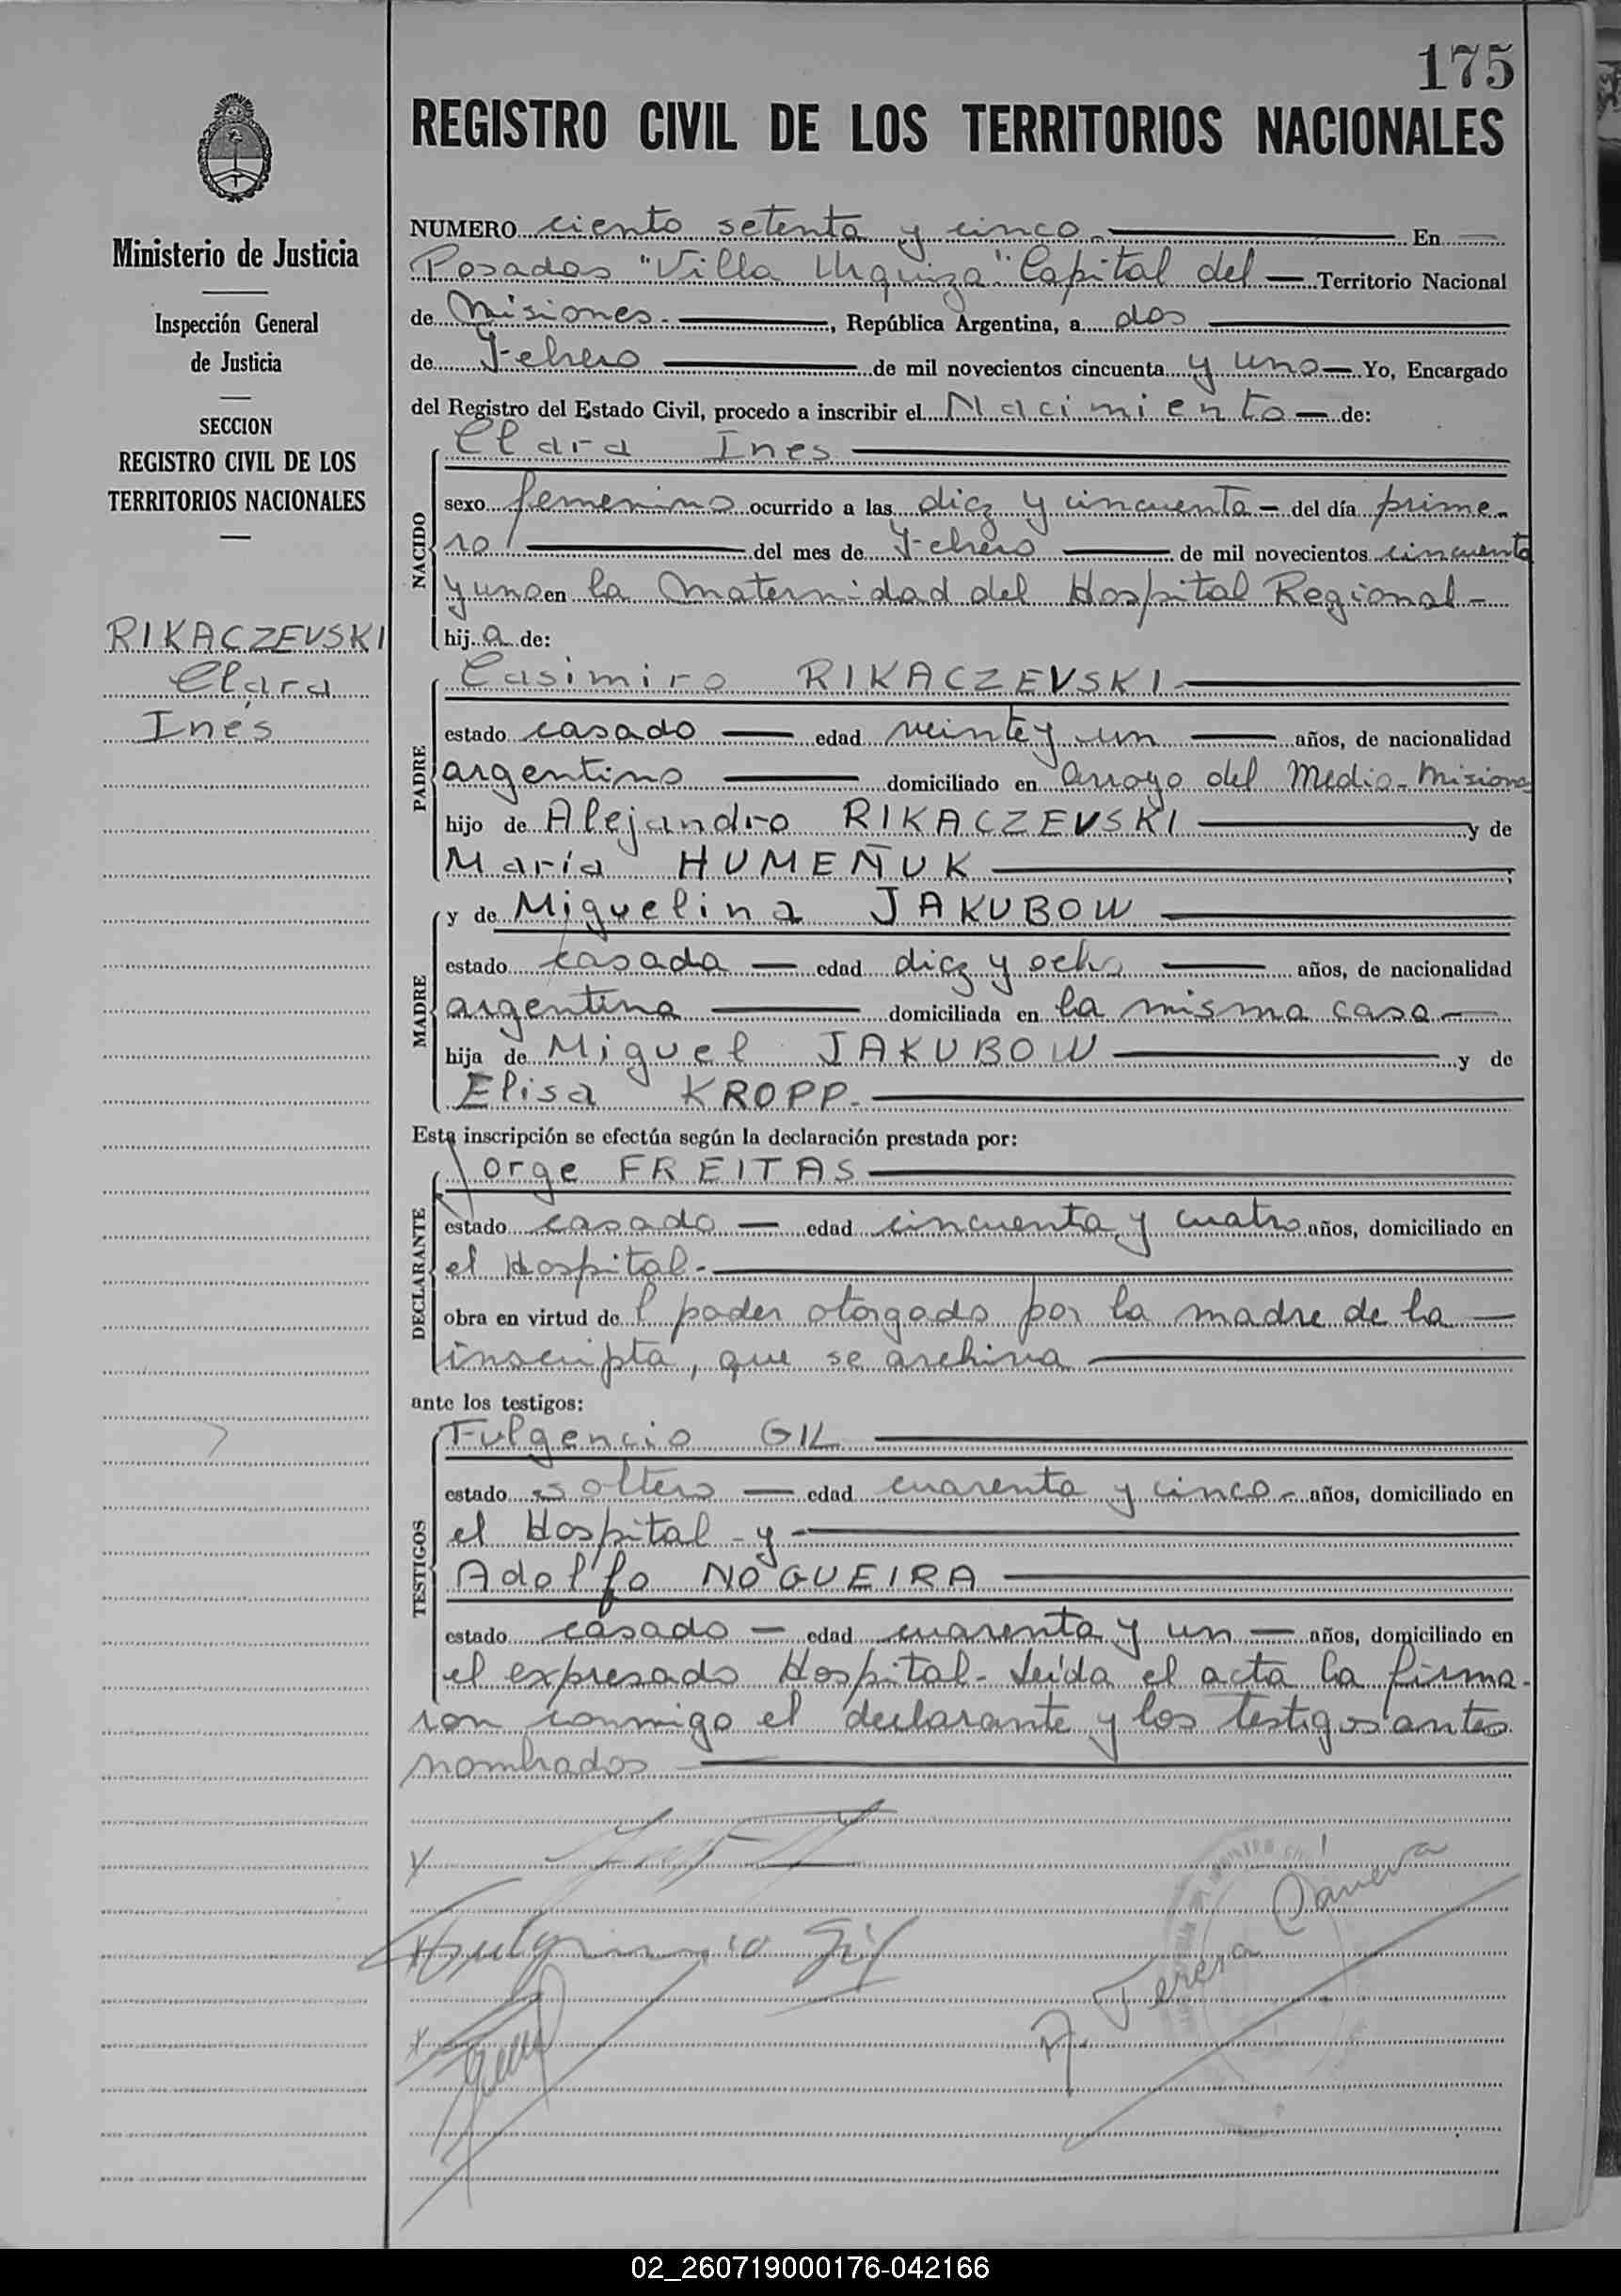 175
REGISTRO CIVIL DE LOS TERRITORIOS NACIONALES
Ministerio de Justicia
Inspección General
de Justicia
SECCION
REGISTRO CIVIL DE LOS
TERRITORIOS NACIONALES
RIKACZEVSKI
Clara
Inés
NUMERO ciento setenta y cinco En
Posadas "Villa Urquiza" Capital del Territorio Nacional
de Misiones. , República Argentina, a dos
de Febrero de mil novecientos cincuenta y uno Yo, Encargado
del Registro del Estado Civil, procedo a inscribir el Nacimiento de:
NACIDO
Clara Ines
sexo femenino ocurrido a las diez y cincuenta del día prime-
ro del mes de Febrero de mil novecientos cincuenta
y uno en la Maternidad del Hospital Regional
hija de:
PADRE
Casimiro RIKACZEVSKI
estado casado edad veinte y un años, de nacionalidad
argentino domiciliado en arroyo del Medio-Misiones
hijo de Alejandro RIKACZEVSKI y de
María HUMEÑUK ;
MADRE
y de Miguelina JAKUBOW
estado casada edad diez y ocho años, de nacionalidad
argentina domiciliada en la misma casa
hija de Miguel JAKUBOW y de
Elisa KROPP.
Esta inscripción se efectúa según la declaración prestada por:
DECLARANTE
Jorge FREITAS
estado casado edad cincuenta y cuatro años, domiciliado en
el Hospital.
obra en virtud de l poder otorgado por la madre de la
inscripta, que se archiva
ante los testigos:
TESTIGOS
Fulgencio GIL
estado soltero edad cuarenta y cinco años, domiciliado en
el Hospital - y
Adolfo NOGUEIRA
estado casado edad cuarenta y un años, domiciliado en
el expresado Hospital- Leída el acta la firma-
ron conmigo el declarante y los testigos antes
nombrados
Fulgencio Gil
A. Teresa
02_260719000176-042166